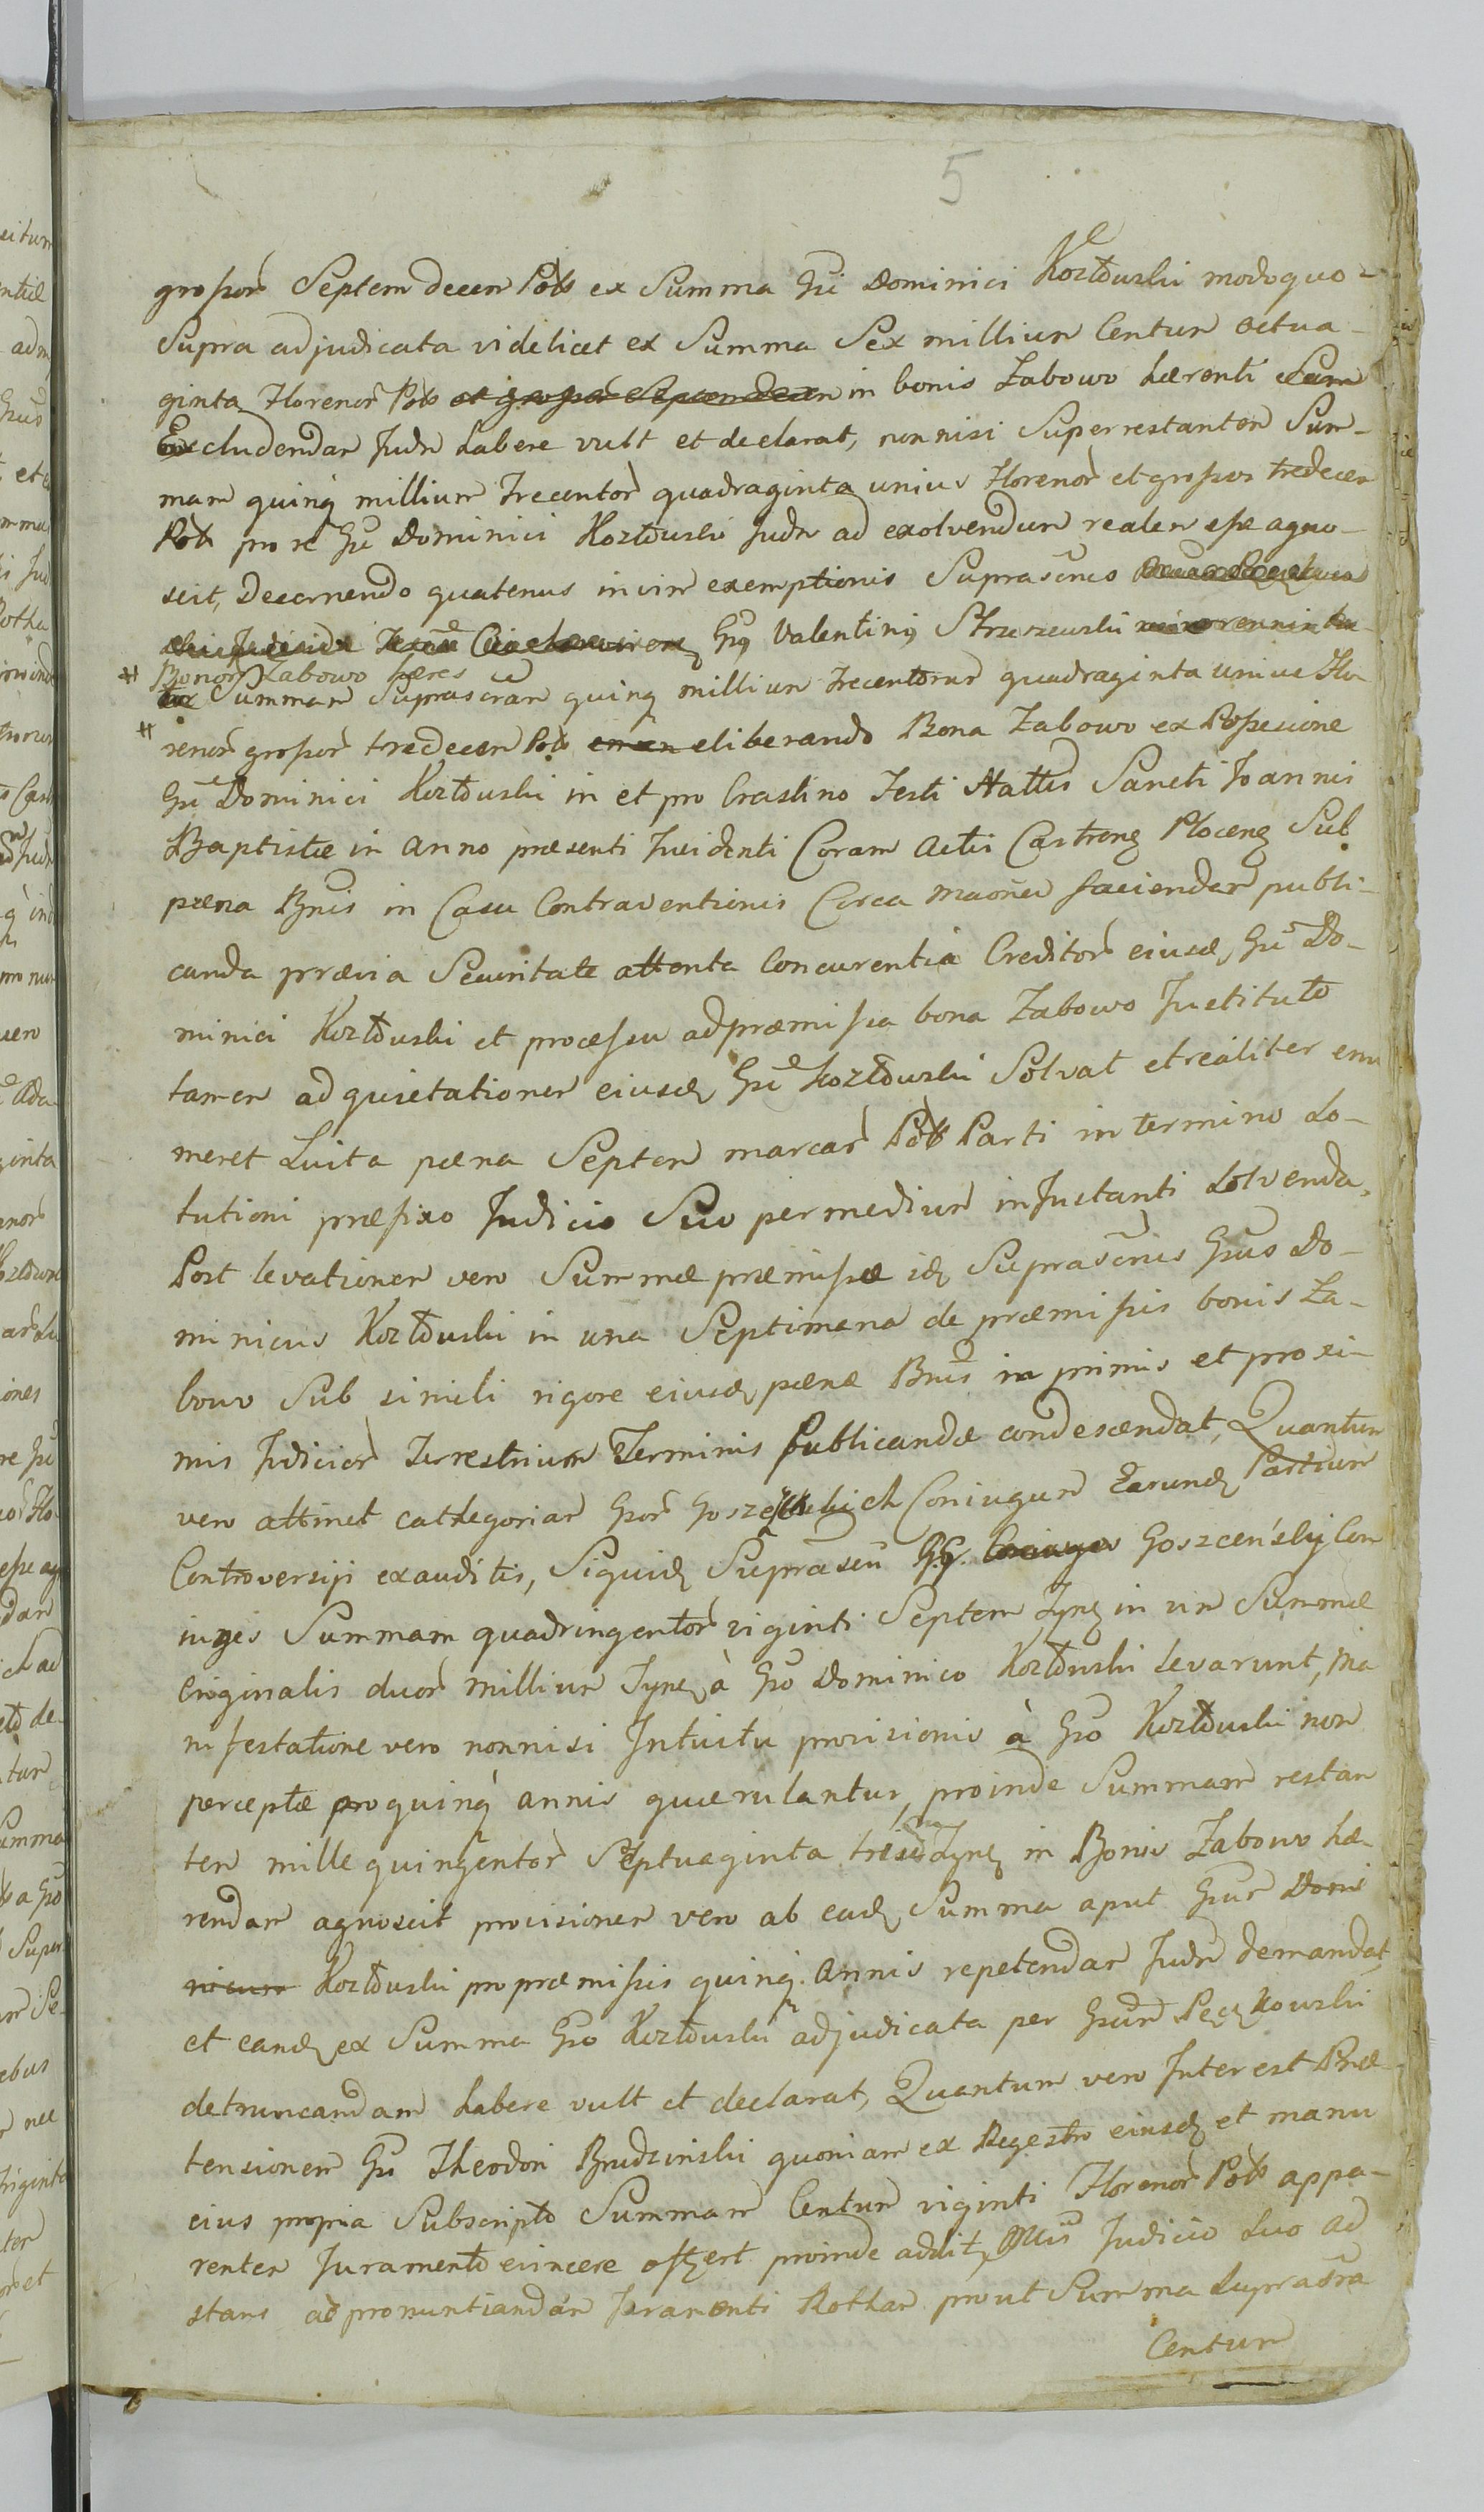 5
grossor̃ Septemdecem Pol̃ ex Summa Gsi Dominici Kozłowski modo quo-
Supra adjudicata videlicet ex Summa Sex millium Centum octua-
ginta Florenor̃ Pol̃ et grossor̃ Septemdecem in bonis Zabowo hærenti
Excludendam Judm habere vult et declarat, nonnisi Superrestantem Sum-
mam quinq̃ millium Trecentor̃ quadraginta unius Florenor̃ et grossor̃ tredecem
Pol̃ pro re Gsi Dominici Kozłowski Judm ad exolvendum realem esse agno-
scit, Decernendo quatenus in vim exemptionis Suprascrius
Gsq Valentinq Strzeszewski
# Bonor̃ Zabowo hæres
Summam Suprascram quinq̃ millium Trecentorum quadraginta unius Flo
# renor̃ grossor̃ tredecem Pol̃ eliberando Bona Zabowo ex Possesione
Gsi Dominici Kozłowski in et pro Crastino Festi Nattis Sancti Joannis
Baptistæ in Anno præsenti Incidenti Coram Actis Castrens Plocens Sub
pæna Bnis in Casu Contraventionis Circa maõnem faciendam publi-
canda prævia Securitate attenta Concurentia Creditor̃ eiusd, Gsi Do-
minici Kozłowski et processu ad præmissa bona Zabowo Instituto
tamen ad quietationem eiusd, Gsi Kozłowski Solvat et realiter enu
meret Luita pæna Septem marcar̃ Pol̃ Parti in termino So-
lutioni præfixo Judicio Suo per medium in Instanti Solvenda,
Post levationem vero Summæ præmissæ id, Suprascrius Gsus Do-
minicus Kozłowski in una Septimana de præmissis bonis Za-
bowo Sub simili rigore eiusd, pænæ Bnis in primis et proxi-
mis Judicior̃ Terrestrium Terminis publicandæ condescendat, Quantum
vero attinet cathegoriam Gsor̃ Coniugum Earund, Partium
Controversijs exauditis, Siquid, Suprascri GG. Coniuges Goszceńskij Con
iuges Summam quadringentor̃ viginti Septem Tynf in vim Summæ
Originalis duor̃ millium Tynf, à Gso Dominico Kozłowski levarunt, Ma
nifestatione vero nonnisi Intuitu provisionis à Gso Kozłowski non
perceptæ pro quinq̃ annis quærulantur, proinde Summam restan
tem mille quingentor̃ Septuaginta trium Tynf in Bonis Zabowo hæ-
rendam agnoscit provisionem vero ab ead, Summa aput Gsum Domi
nicum Kozłowski pro præmissis quinq. Annis repetendam Judm demandat,
et eand, ex Summa Gso Kozłowski adjudicata per Gsum
detruncandam habere vult et declarat, Quantum vero Interest Præ-
tensionem Gsi Theodori Brudzinski quoniam ex Regestro eiusd, et manu
eius propria Subscripto Summam Centum viginti Florenor̃ Pol̃ appa-
rentem Juramento evincere offert proinde Judicio Suo ad
stans ad pronuntiandam Juramenti Rotham prout Summa Suprascra
Centum